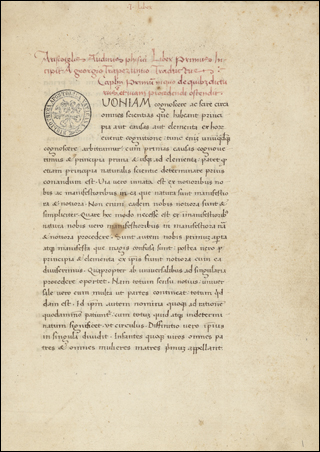 Aristotelis Auditus physici Liber Primus In
cipit A georgio Trapezuntio Traductus
Caplm Primum
procedendi ostendit
UONIAM cognoscere ac scire circa
omnes scientias que habent princi
pia aut causas aut elementa ex hor
cognitione tunc eni unuqdq
cognoscere arbitramur cum primas causas cognove
rimus & principia prima & usq ad elementa patet q
etiam principia naturalis scientie determinare prius
conandum est Via vero innata est ex notioribus no
bis ac manifestioribus in ea que natura sunt manifestio
ra & notiora Non enim eadem nobis notiora sunt &
simpliciter Quare hoc modo necesse est ex
natura nobis vero manifestioribus in manifestiora
& notiora procedere Sunt autem nobis primum apta
atq manifesta que magis confusa sunt postea vero
principia & elementa ex ipsis sunt notiora cum ea
dividerimus Quapropter ab universalibus ad singularia
procedere oportet Nam totum sensu notius univer
sale vero cum multa ut partes contineat totum qd
dam est Id ipm autem nomina quoq ad rationem
quodammo cum totum quid atq indetermi
natum significet ut circulus Diffinitio vero ipsius
in singula dividit Infantes quoq viros omnes pa
tres & omnes mulieres matres primum appellant